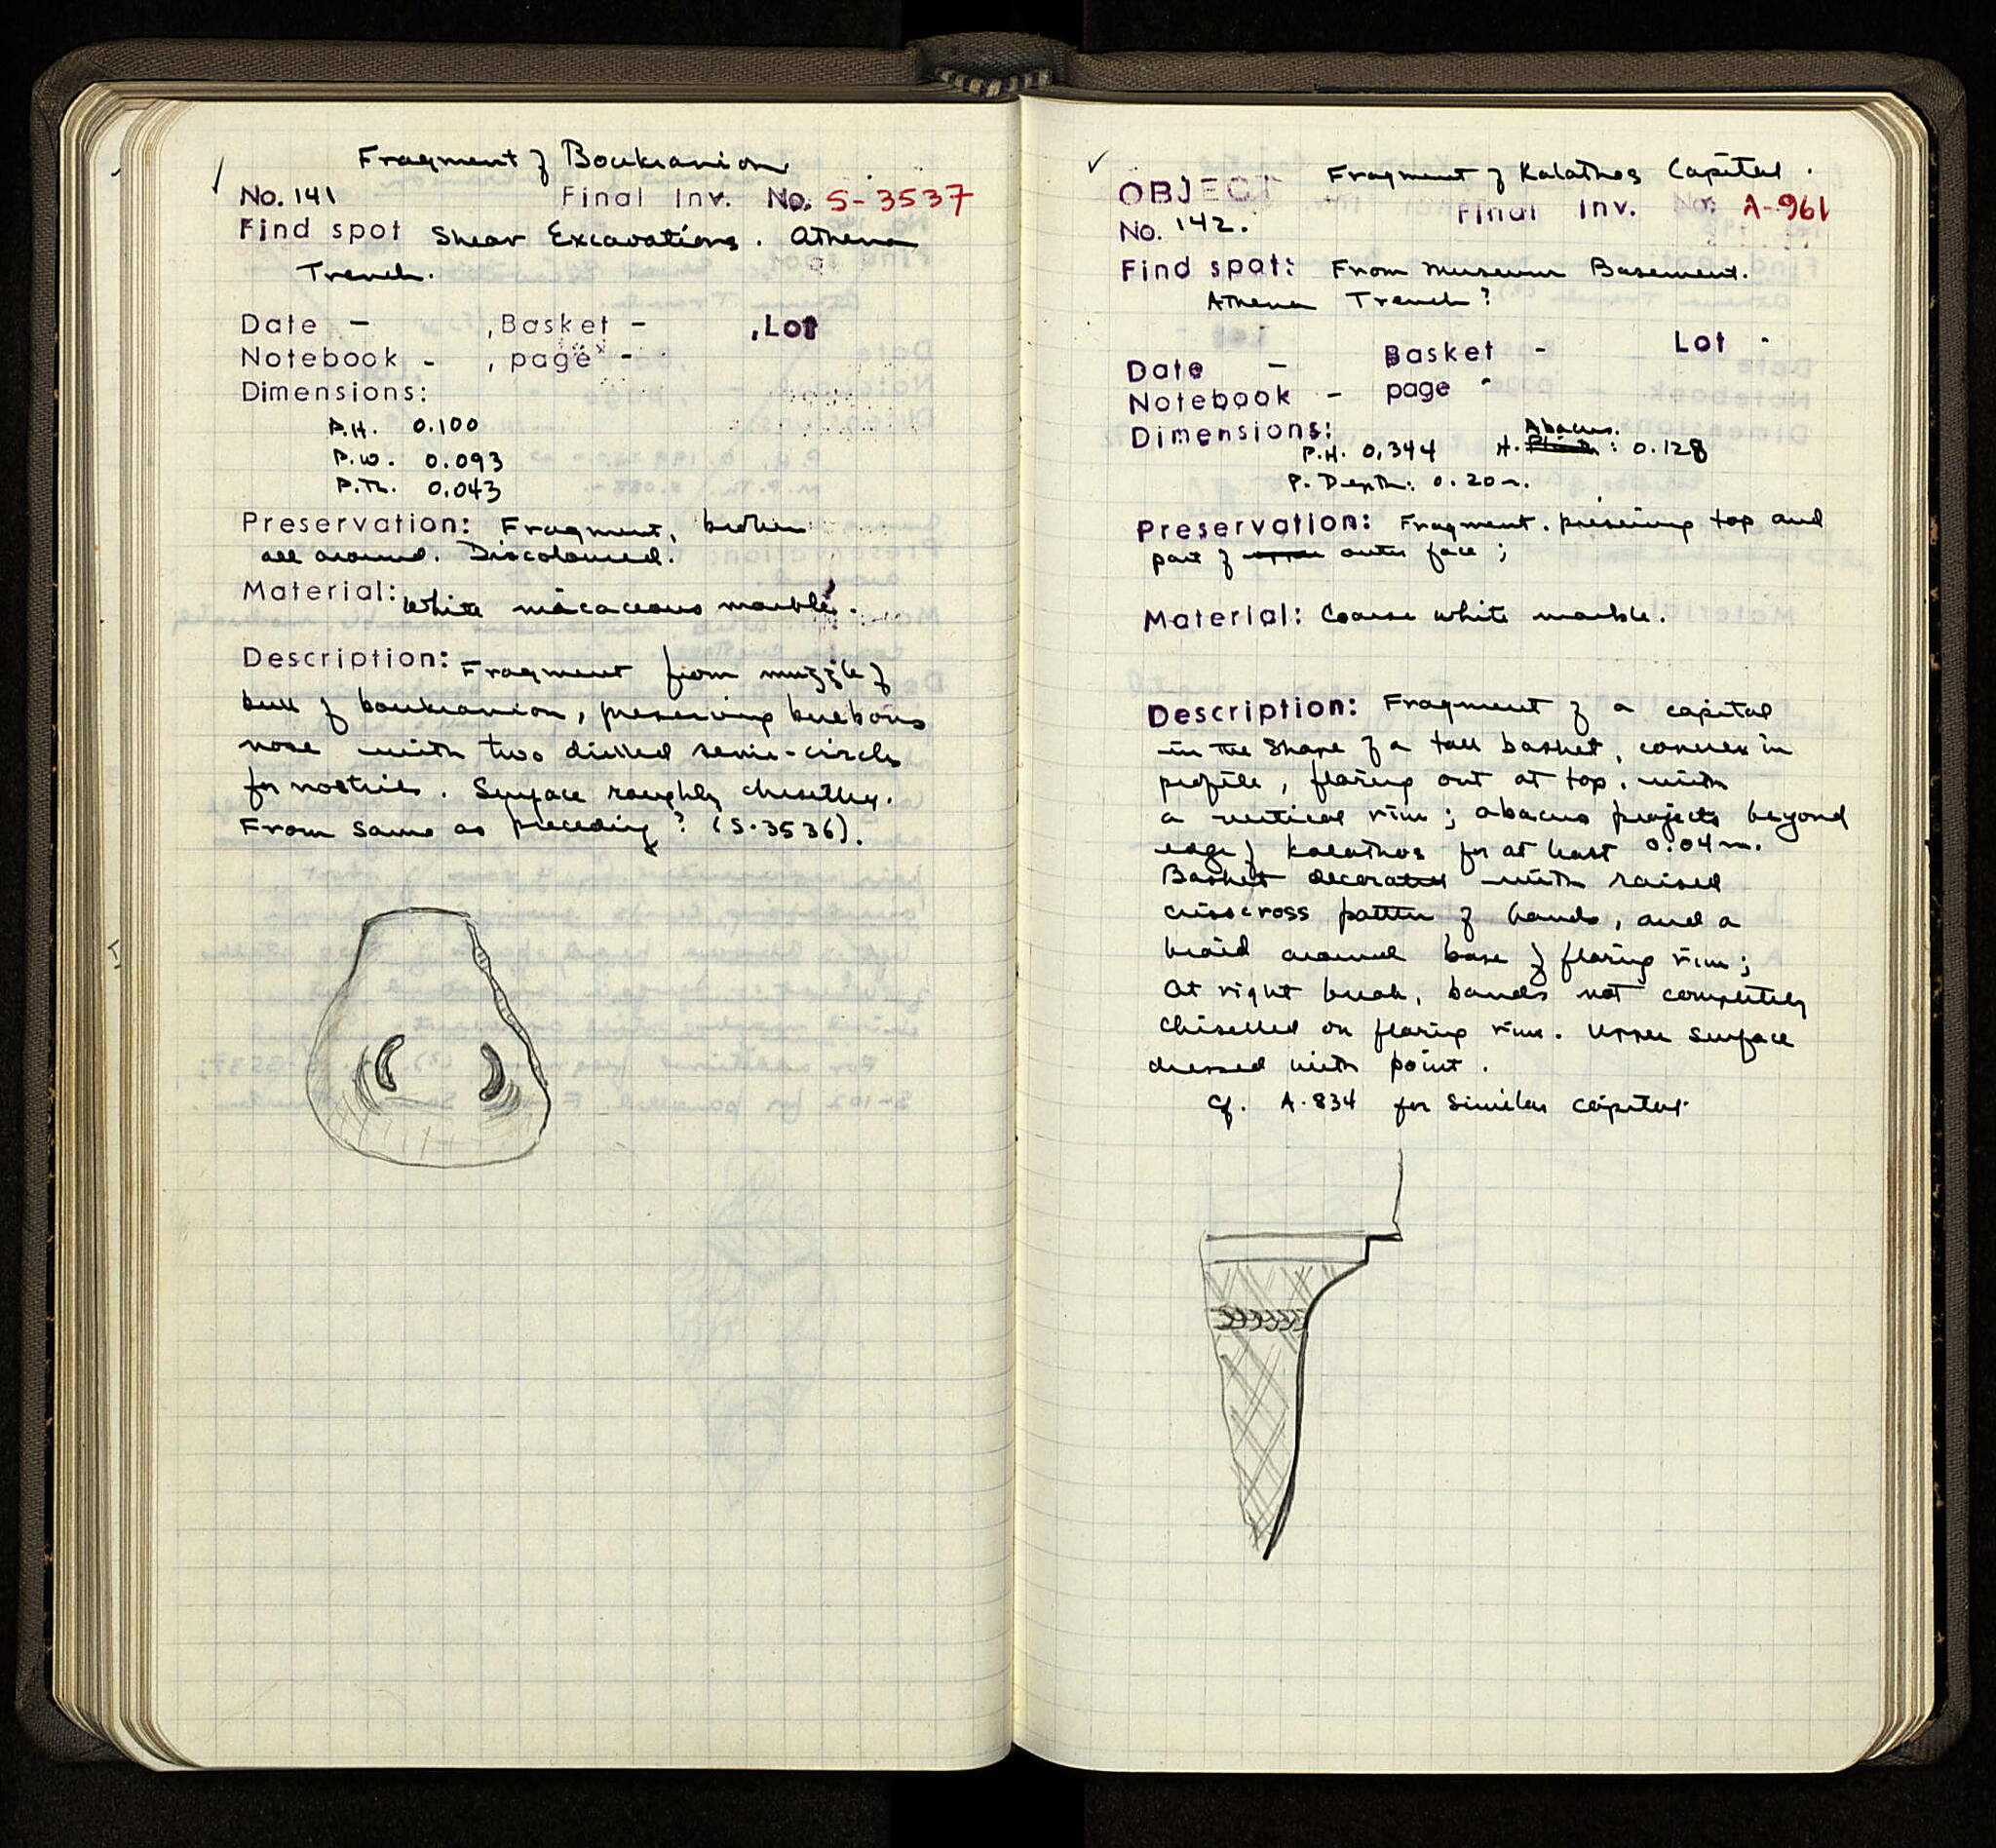 Fragment of Boukranion
No. 141 Final Inv. No. S-3537
Find spot Shear Excavations. Athena
Trench.
Date - , Basket - , Lot
Notebook - , page -
Dimensions:
P.H. 0.100
P.W. 0.093
P.Th. 0.043
Preservation: Fragment, broken
all around. Discoloured.
Material: White micaceous marble.
Description: Fragment from muzzle of
bull of boukranion, preserving bulbous
nose with two drilled semi-circles
for nostrils. Surface roughly chiselled.
From same as preceding? (S-3536).
Fragment of Kalathos Capital.
OBJECT Final Inv. No. A-961
No. 142.
Find spot: From Museum Basement.
Athena Trench?
Lot -
Date - Basket -
Notebook - page -
Dimensions: Abacus.
P.H. 0.344 H. Plinth: 0.128
P. Depth: 0.20 m.
Preservation: Fragment. preserving top and
part of upper outer face;
Material: Coarse white marble.
Description: Fragment of a capital
in the shape of a tall basket, convex in
profile, flaring out at top, with
a vertical rim; abacus projects beyond
edge of kalathos for at least 0.04 m.
Basket decorated with raised
crisscross pattern of bands, and a
braid around base of flaring rim;
at right break, bands not completely
chiselled on flaring rim. Upper surface
dressed with point.
cf. A-834 for similar capital.